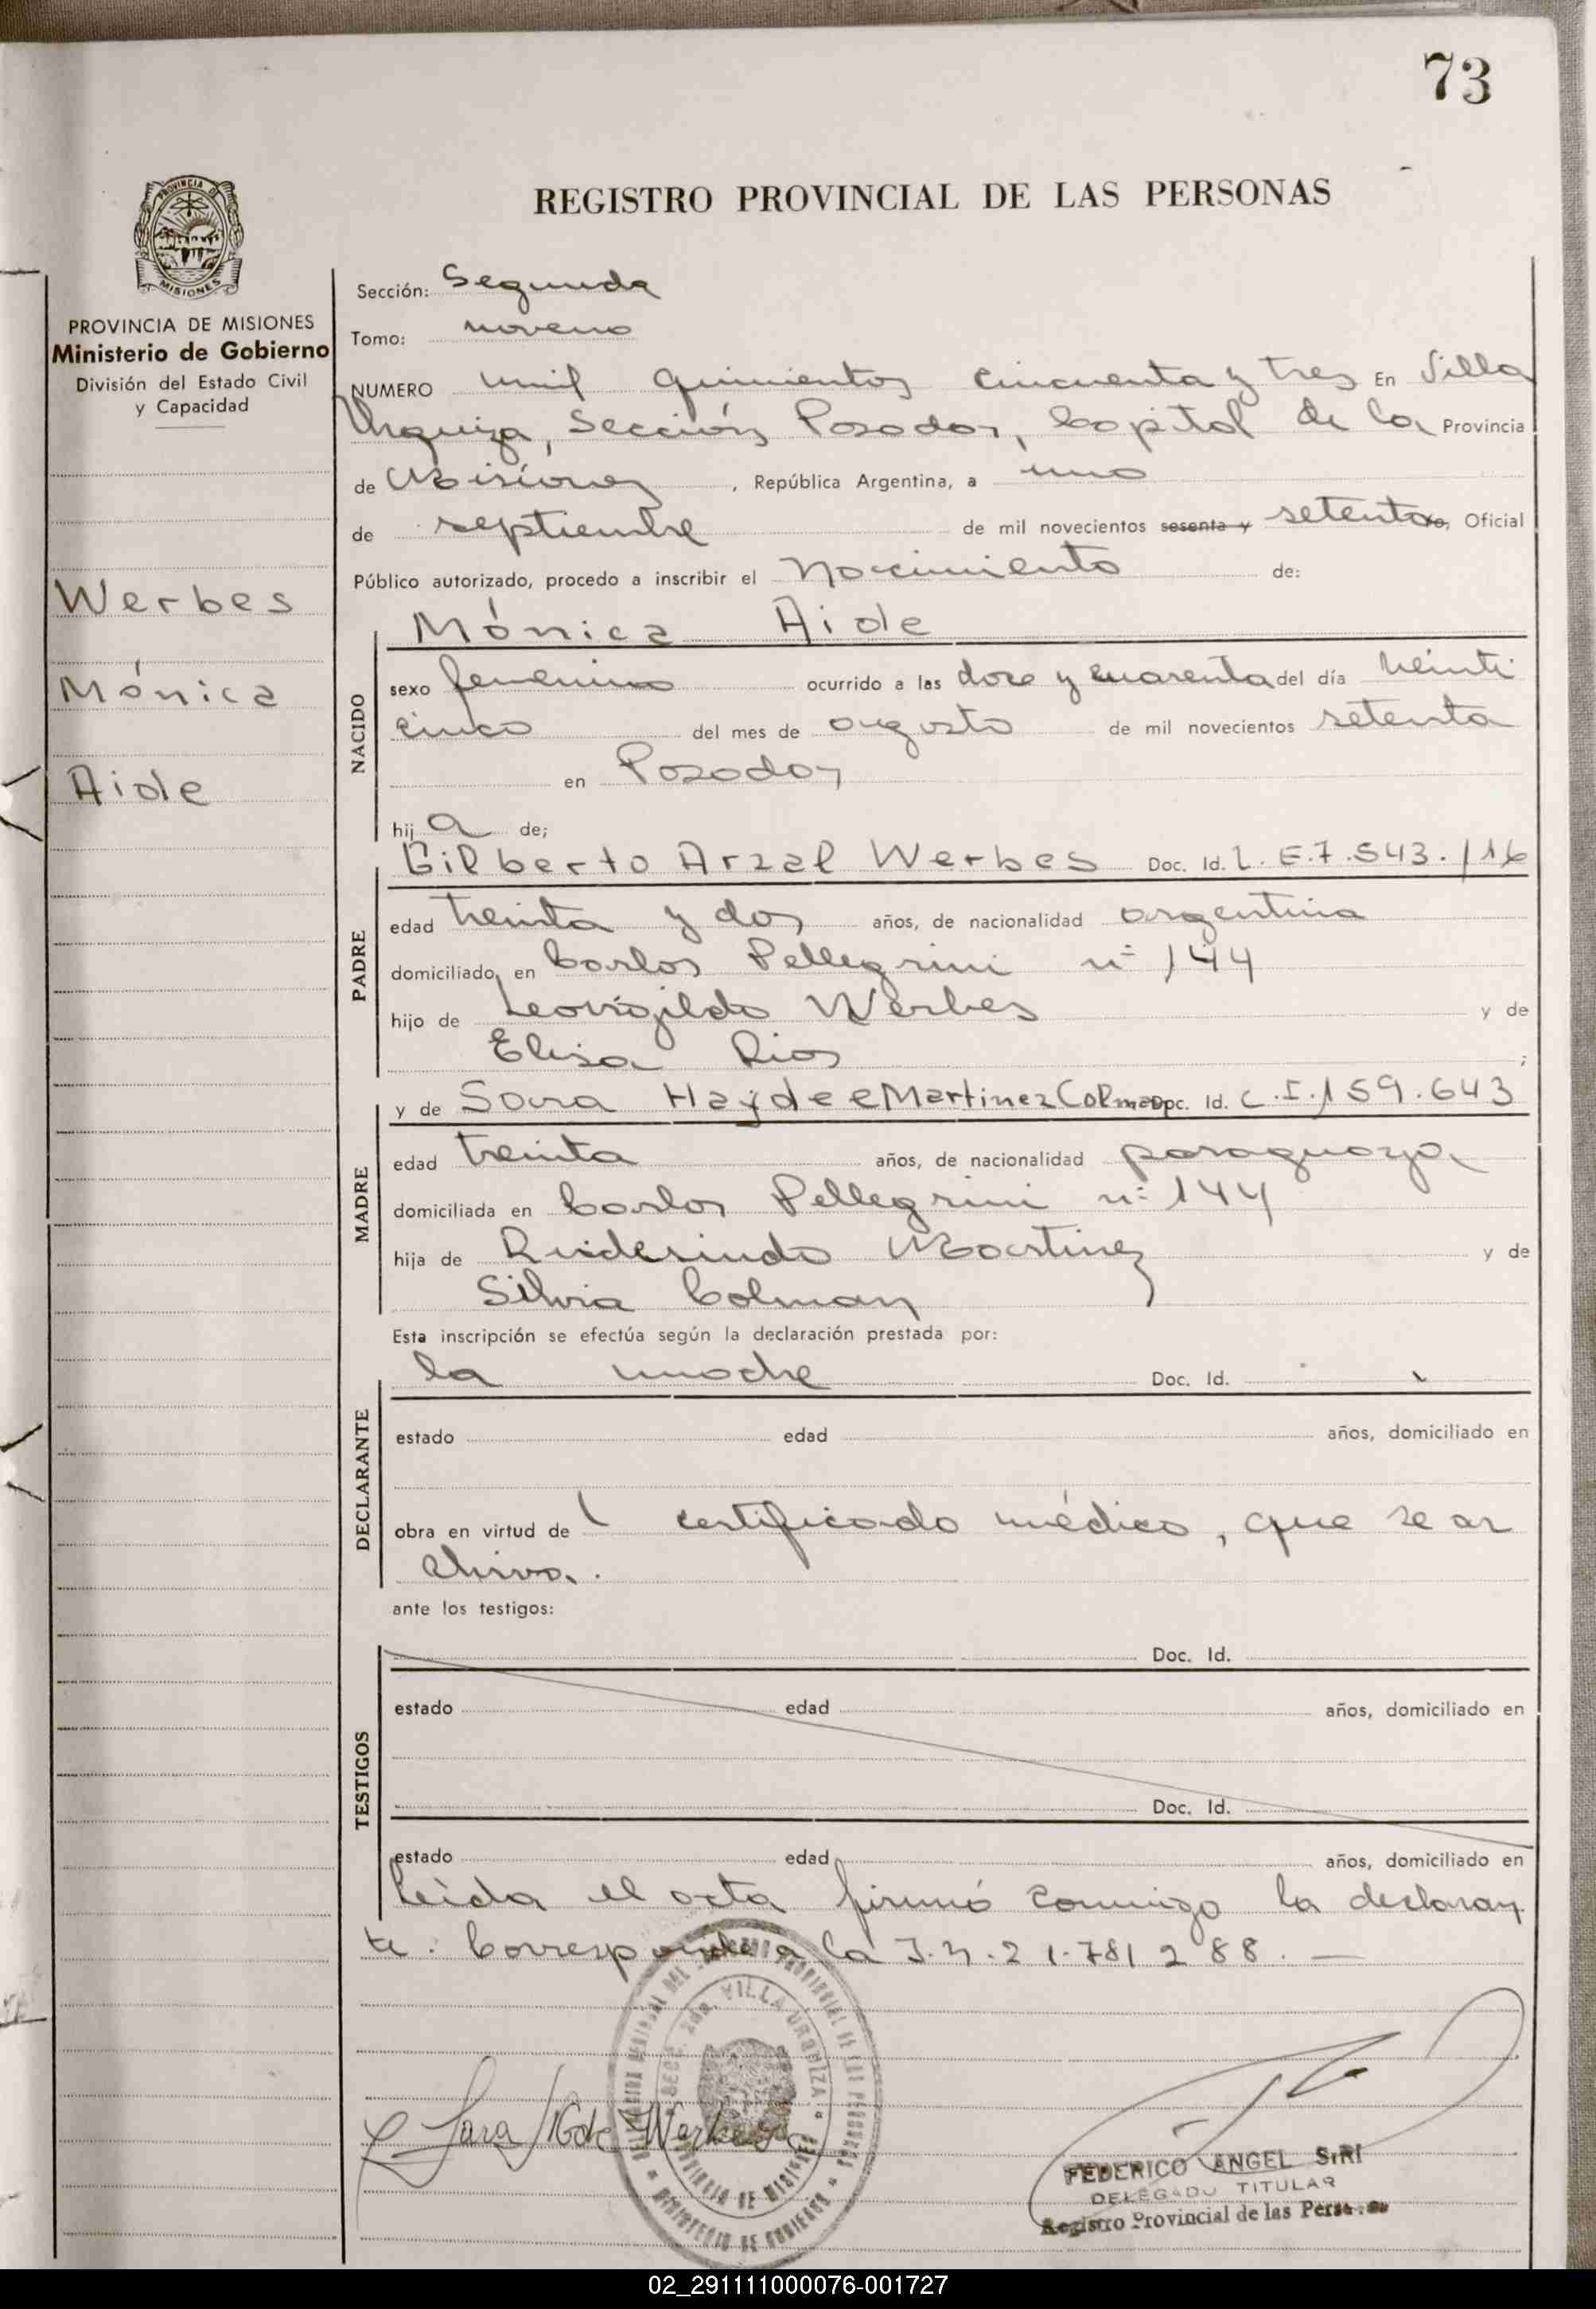 73
REGISTRO PROVINCIAL DE LAS PERSONAS
PROVINCIA DE MISIONES
Ministerio de Gobierno
División del Estado Civil
y Capacidad
Werbes
Mónica
Aide
Sección: Segunda
Tomo: noveno
NUMERO mil quinientos cincuenta y tres En Villa
Urquiza, Sección Posadas, Capital de la Provincia
de Misiones, República Argentina, a uno
de septiembre de mil novecientos sesenta y setenta, Oficial
Público autorizado, procedo a inscribir el Nacimiento de:
NACIDO
Mónica Aide
sexo femenino ocurrido a las doce y cuarenta del día veinti
cinco del mes de agosto de mil novecientos setenta
en Posadas
hij a de;
PADRE
Gilberto Arzal Werbes Doc. Id. L.E.7.543.116
edad treinta y dos años, de nacionalidad argentina
domiciliado en Carlos Pellegrini nº 144
hijo de Leovigildo Werbes y de
Elisa Rios ;
MADRE
y de Sara Haydee Martinez Colman Doc. Id. C.I.159.643
edad treinta años, de nacionalidad paraguaya
domiciliada en Carlos Pellegrini nº 144
hija de Rudesindo Martinez y de
Silvia Colman
Esta inscripción se efectúa según la declaración prestada por:
DECLARANTE
la madre Doc. Id.
estado edad años, domiciliado en
obra en virtud de certificado médico, que se ar
chiva.
ante los testigos:
TESTIGOS
Doc. Id.
estado edad años, domiciliado en
Doc. Id.
estado edad años, domiciliado en
Leida el acta firmó conmigo la declaran
te. Corresponde a la I.N.21.781288.
Sara M de Werbes
SECC. 2da. VILLA URQUIZA
PROVINCIA DE MISIONES
MINISTERIO DE GOBIERNO
FEDERICO ANGEL SIRI
DELEGADO TITULAR
Registro Provincial de las Personas
02_291111000076-001727